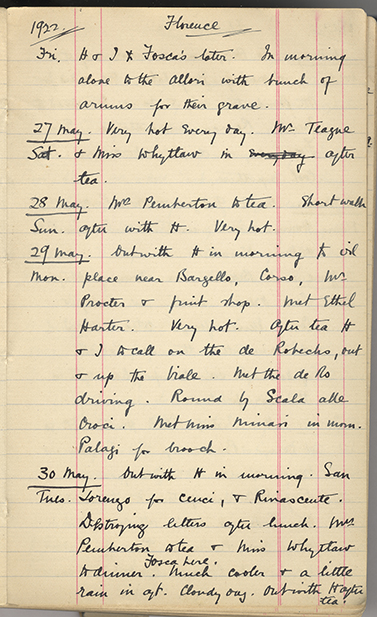 1922 Florence
Fri. H & I & Tosca's later. In morning
alone to the Allori with bunch of
arums for their grave.
27 May. Very hot every day. Mr. Teague
Sat. & Miss Whyttaw in every day after
tea.
28 May. Mrs Pemberton to tea. Short walk
Sun. after with H. Very hot.
29 May. Out with H in morning to oil
Mon. place near Bargello, Corso, Mr.
Procter & fruit shop. Met Ethel
Harter. Very hot. After tea H
& I to call on the de Robecks, out
& up the Viale. Met the de Rs
driving. Round by Scala alle
Croci. Met Miss in morn.
Palagi for brooch.
30 May. Out with H in morning. San
Tues. Lorenzo for cenci, & Rinascente.
Destroying letters after lunch. Mrs
Pemberton to tea & Miss Whyttaw
Tosca here.
to dinner. Much cooler & a little
rain in aft. Cloudy day. Out with H after
tea.